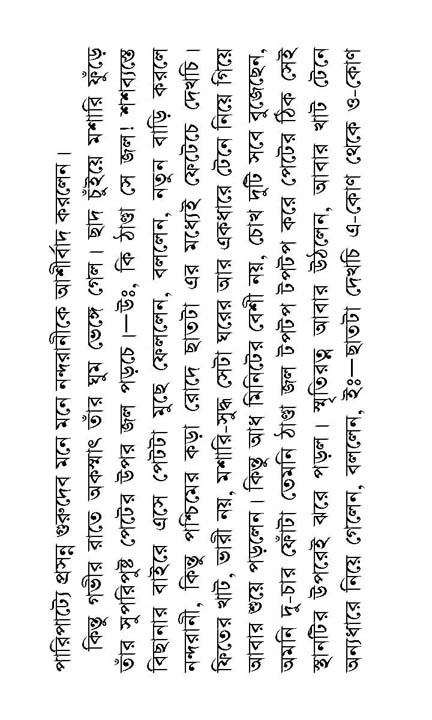 পারিপাট্যে প্রসন্ন গুরুদেব মনে মনে নন্দরানীকে আশীর্বাদ করলেন।
কিন্তু গভীর রাতে অকস্মাৎ তাঁর ঘুম ভেঙ্গে গেল। ছাদ চুঁইয়ে মশারি ফুঁড়ে
তাঁর সুপরিপুষ্ট পেটের উপর জল পড়চে।—উঃ, কি ঠাণ্ডা সে জল! শশব্যস্তে
বিছানার বাইরে এসে পেটটা মুছে ফেললেন, বললেন, নতুন বাড়ি করলে
নন্দরানী, কিন্তু পশ্চিমের কড়া রোদে ছাতটা এর মধ্যেই ফেটেচে দেখচি।
ফিতের খাট, ভারী নয়, মশারি-সুদ্ধ সেটা ঘরের আর একধারে টেনে নিয়ে গিয়ে
আবার শুয়ে পড়লেন। কিন্তু আধ মিনিটের বেশী নয়, চোখ দুটি সবে বুজেছেন,
অমনি দু-চার ফোঁটা তেমনি ঠাণ্ডা জল টপটপ টপটপ করে পেটের ঠিক সেই
স্থানটির উপরেই ঝরে পড়ল। স্মৃতিরত্ন আবার উঠলেন, আবার খাট টেনে
অন্যধারে নিয়ে গেলেন, বললেন, ইঃ—ছাতটা দেখচি এ-কোণ থেকে ও-কোণ